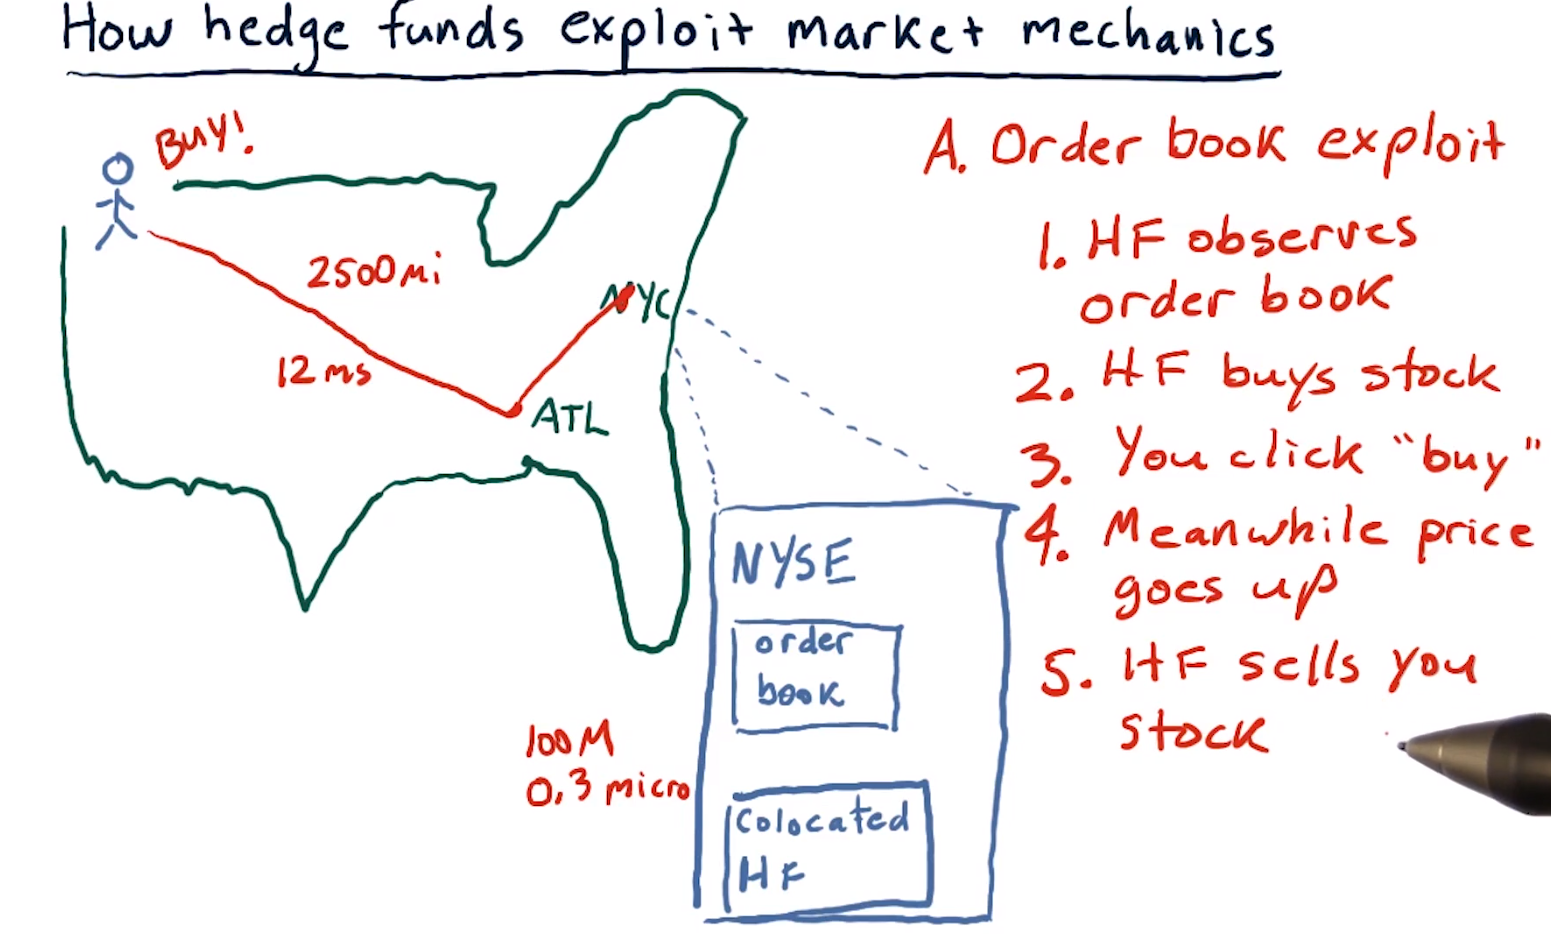 How hedge funds exploit market mechanics
BUY!
2500 mi
12 ms
NYC
ATL
NYSE
order
book
100 M
0.3 micro
Colocated
HF
A. Order book exploit
1. HF observes
order book
2. HF buys stock
3. You click "buy"
4. Meanwhile price
goes up
5. HF sells you
stock